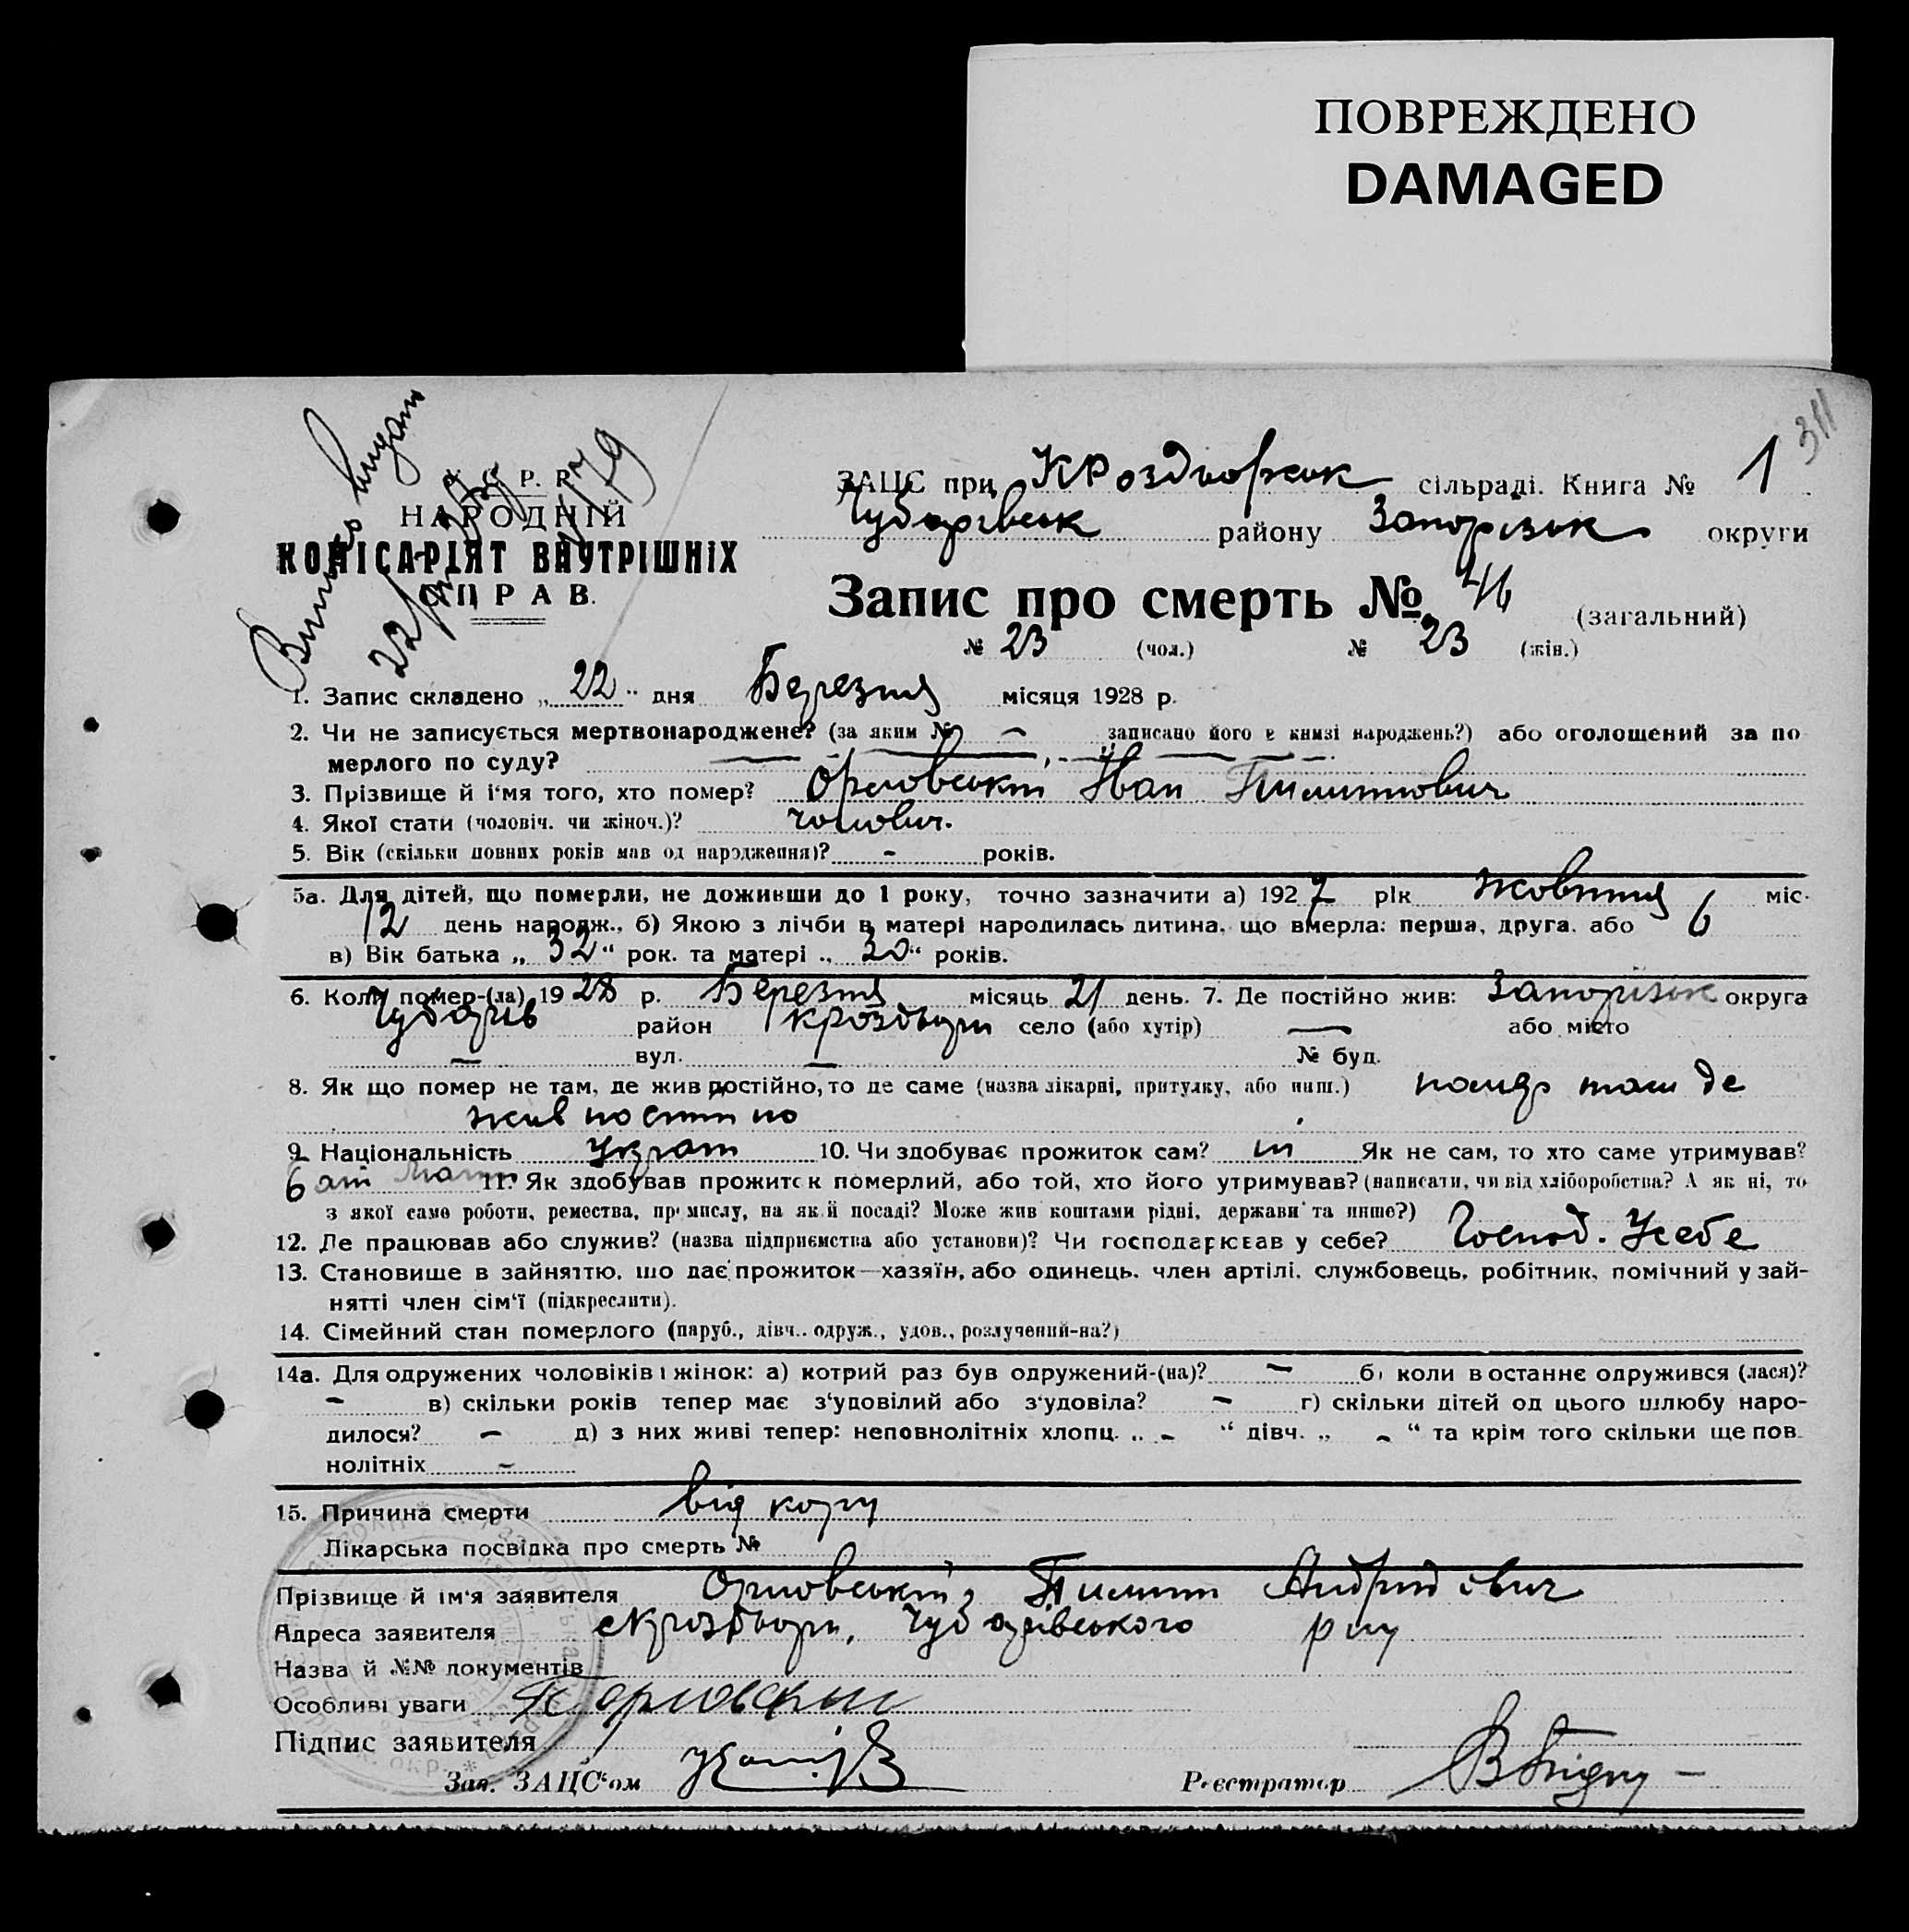 ПОВРЕЖДЕНО
DAMAGED
311
У. С. Р. Р.
НАРОДНІЙ
КОМІСАРІЯТ ВНУТРІШНІХ
СПРАВ.
ЗАЦС при Кроздворськ сільраді. Книга № 1
Чубарівськ району Запорізьк округи
Запис про смерть № 46 (загальний)
№ 23 (чол.) № 23 (жін.)
1. Запис складено „22" дня Березня місяця 1928 р.
2. Чи не записується мертвонароджене? (за яким № — записано його в книзі народжень?) або оголошений за по
мерлого по суду? —
3. Прізвище й і'мя того, хто помер? Орловський Іван Пилипович
4. Якої стати (чоловіч. чи жіноч.)? чоловіч.
5. Вік (скільки повних років мав од народження)? - років.
5а. Для дітей, що померли, не доживши до 1 року, точно зазначити а) 1927 рік жовтня міс.
12 день народж., б) Якою з лічби в матері народилась дитина, що вмерла: перша, друга, або 6
в) Вік батька „32" рок. та матері „30" років.
6. Коли помер-(ла) 1928 р. Березня місяць 21 день. 7. Де постійно жив: Запорізьк округа
Чубарів район Кроздори село (або хутір) — або місто
— вул. — № буд.
8. Як що помер не там, де жив постійно, то де саме (назва лікарні, притулку, або инш.) помер там де
жив постійно
9. Національність Украї 10. Чи здобуває прожиток сам? ні Як не сам, то хто саме утримував?
Бать Мати 11. Як здобував прожиток померлий, або той, хто його утримував? (написати, чи від хліборобства? А як ні, то
з якої саме роботи, ремества, промислу, на якій посаді? Може жив коштами рідні, держави та инше?)
12. Де працював або служив? (назва підприємства або установи)? Чи господарював у себе? Господ. Усебе
13. Становище в зайняттю, що дає прожиток—хазяїн, або одинець, член артілі, службовець, робітник, помічний у зай-
нятті член сім'ї (підкреслити).
14. Сімейний стан померлого (паруб., дівч., одруж., удов., розлучений-на?)
14а. Для одружених чоловіків і жінок: а) котрий раз був одружений-(на)? - б) коли востаннє одружився (лася)?
- в) скільки років тепер має з'удовілий або з'удовіла? - г) скільки дітей од цього шлюбу наро-
дилося? - д) з них живі тепер: неповнолітніх хлопц. „-" дівч. „-" та крім того скільки ще пов
нолітніх -
15. Причина смерти від кору
Лікарська посвідка про смерть №
Прізвище й ім'я заявителя Орловський Пилип Андрійович
Адреса заявителя с Кроздори, Чубарівського рну
Назва й №№ документів
Особливі уваги П Орловский
Підпис заявителя
Зав. ЗАЦС'ом
Реєстратор